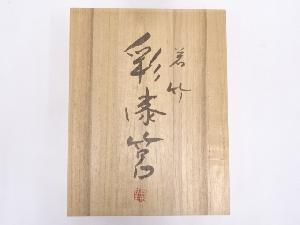 若竹
彩漆筥